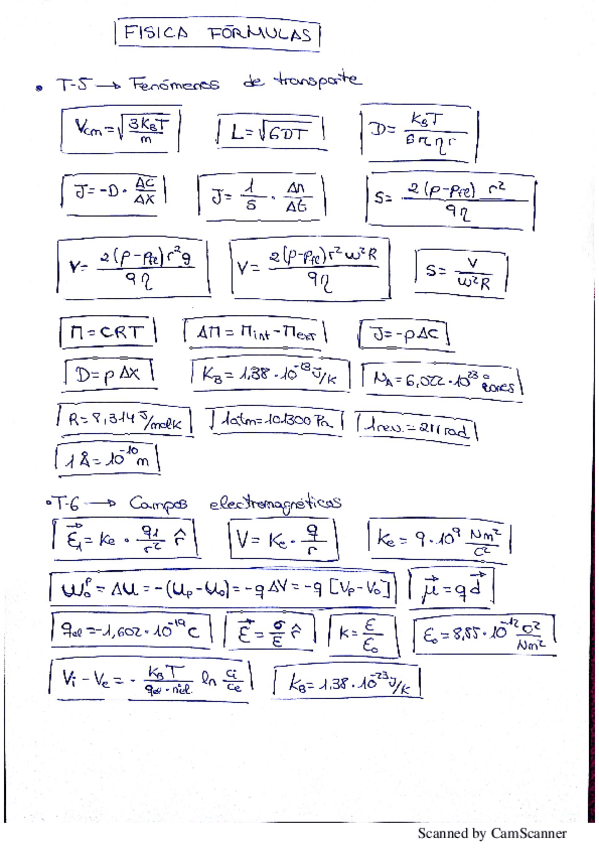 FISICA FÓRMULAS
• T-5 → Fenómenos de transporte
Vcm = √(3KBT/m) L = √(6DT) D = KBT/(6πηr)
J = -D · ΔC/ΔX J = 1/S · Δn/Δt S = 2(ρ-ρfl) r²/(9η)
V = 2(ρ-ρfl)r²g/(9η) V = 2(ρ-ρfl)r²ω²R/(9η) S = V/(ω²R)
Π = CRT ΔΠ = Πint - Πext J = -pΔC
D = pΔX KB = 1,38 · 10⁻²³ J/K NA = 6,022 · 10²³
R = 8,314 J/molK 1atm = 101300 Pa 1rev. = 2π rad
1 Å = 10⁻¹⁰ m
• T-6 → Campos electromagnéticos
E⃗₁ = Ke · q1/r² r̂ V = Ke · q/r Ke = 9 · 10⁹ Nm²/C²
W₀ᵖ = ΔU = -(Up - U₀) = -qΔV = -q [Vp - V₀] μ⃗ = q d⃗
qel = -1,602 · 10⁻¹⁹ C E⃗ = σ/ε r̂ K = ε/ε₀ ε₀ = 8,85 · 10⁻¹² C²/Nm²
Vi - Ve = - KBT/(qel · nel) ln ci/ce KB = 1,38 · 10⁻²³ J/K
Scanned by CamScanner